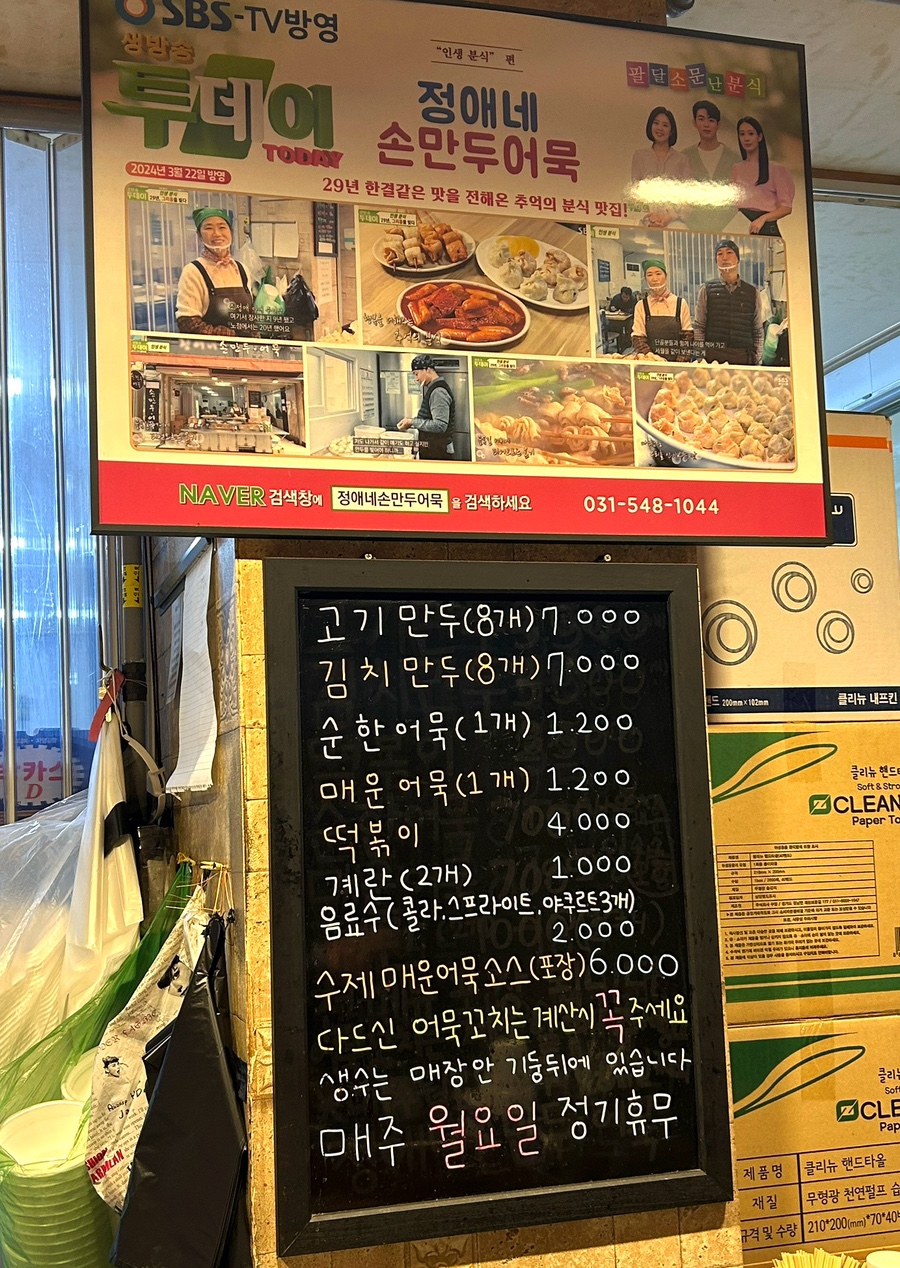 SBS-TV방영
생방송
투데이
TODAY
2024년 3월 22일 방영
"인생 분식" 편
정애네
손만두어묵
팔달소문난분식
29년 한결같은 맛을 전해온 추억의 분식 맛집!
여기서 장사한 지 9년 됐고
노점에서는 20년 했어요
NAVER 검색창에 정애네손만두어묵 을 검색하세요
031-548-1044
고기만두(8개) 7.000
김치만두(8개) 7.000
순한어묵(1개) 1.200
매운어묵(1개) 1.200
떡볶이 4.000
계란(2개) 1.000
음료수(콜라.스프라이트.야쿠르트3개)
2.000
수제매운어묵소스(포장) 6.000
다드신 어묵꼬치는 계산시 꼭 주세요
생수는 매장안 기둥뒤에 있습니다
매주 월요일 정기휴무
200mm×102mm
클리뉴 내프킨
클리뉴 핸드타
Soft & Stro
CLEAN
Paper To
클리뉴
Soft
CLE
Pap
제품명 클리뉴 핸드타올
재질 무형광 천연펄프
규격 및 수량 210*200(mm)*70*40
카스